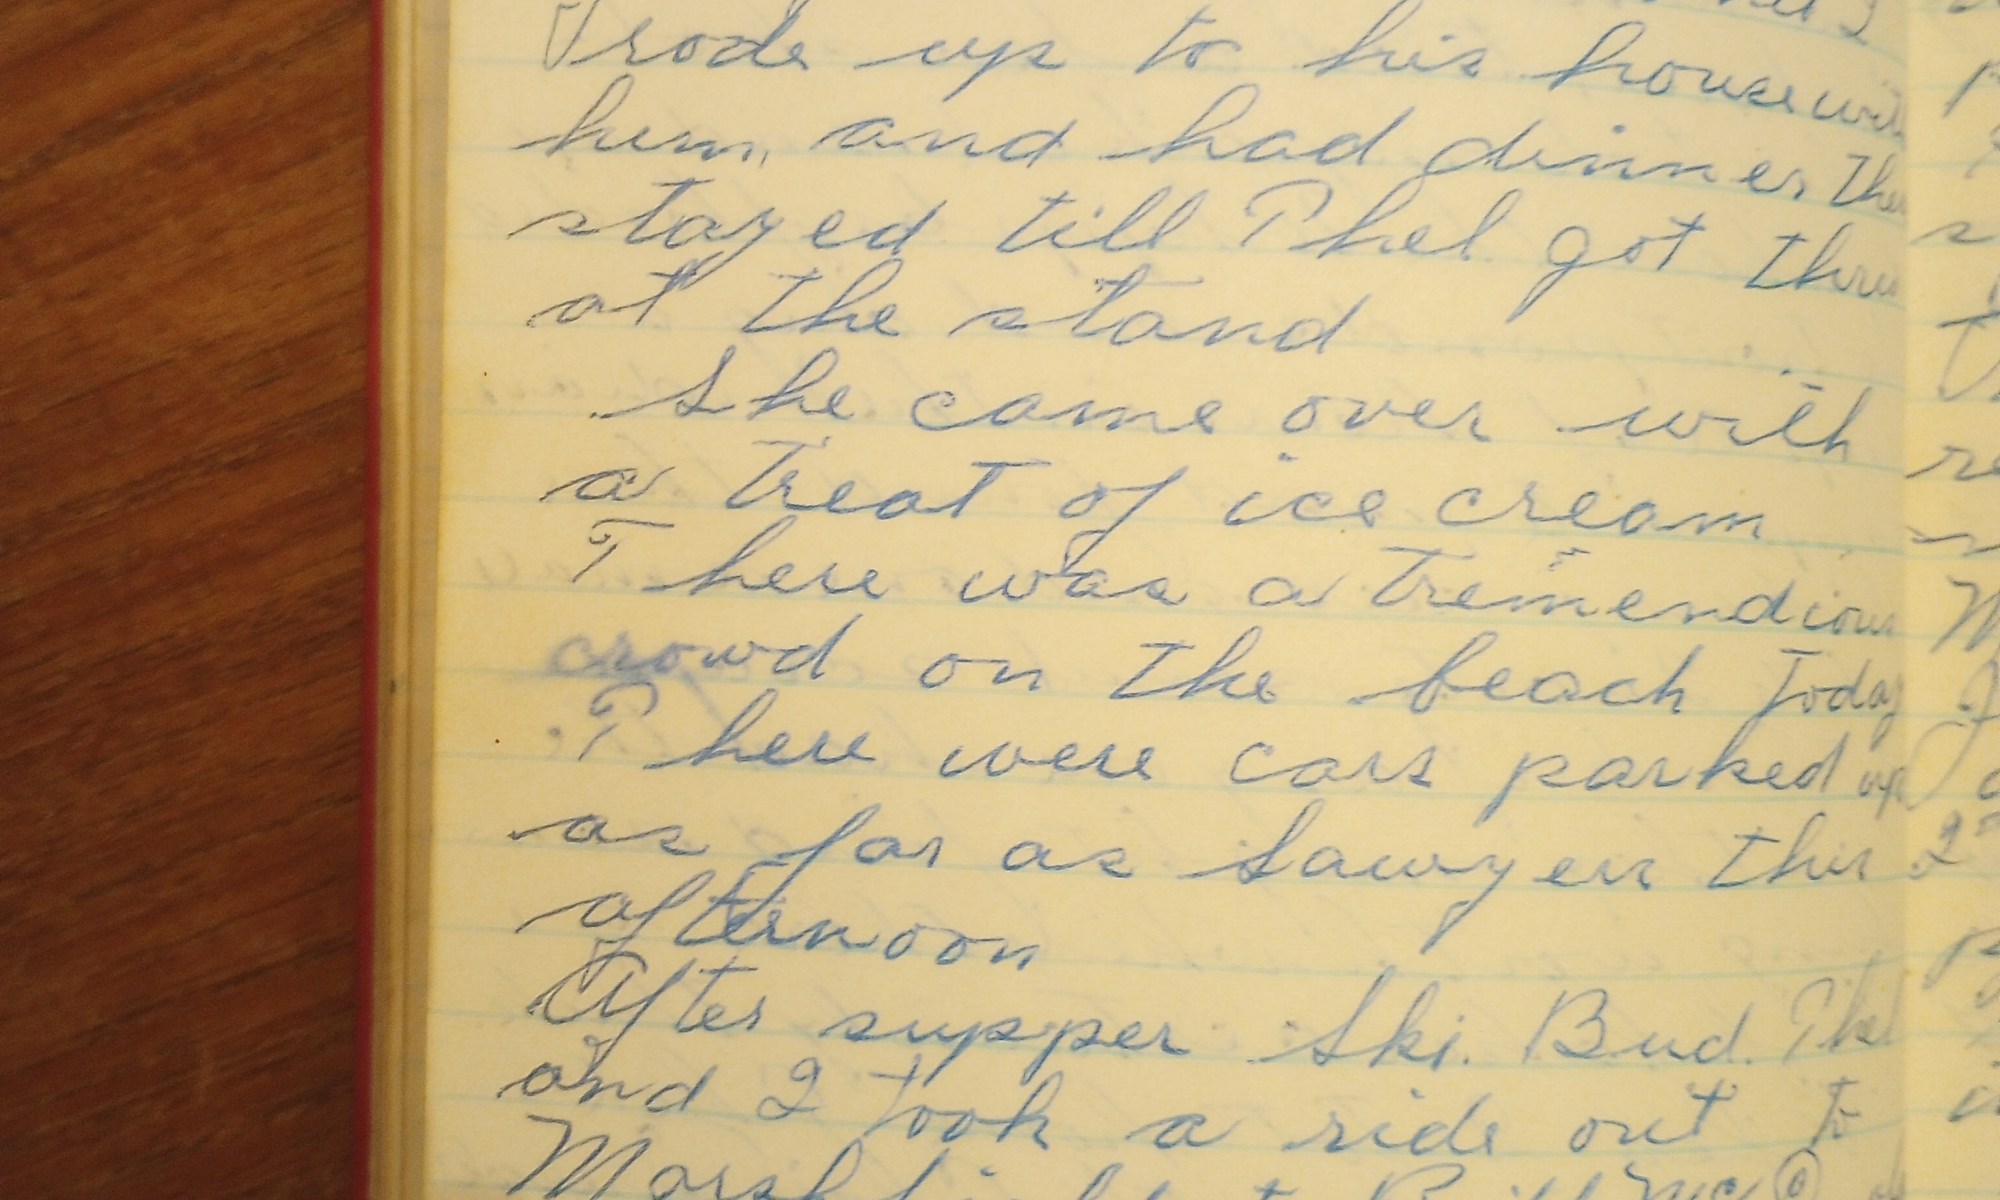 rode up to his house with
him, and had dinner there
stayed till Phel got thru
at the stand
She came over with
a treat of ice cream
There was a tremendious
crowd on the beach today
There were cars parked up
as far as Sawyers this
afternoon
After supper Ski. Bud. Phel
and I took a ride out to